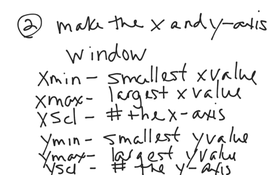 ② make the x and y-axis
window
xmin - smallest x value
xmax - largest x value
xscl - # the x-axis
ymin - smallest y value
ymax - largest y value
yscl - # the y-axis